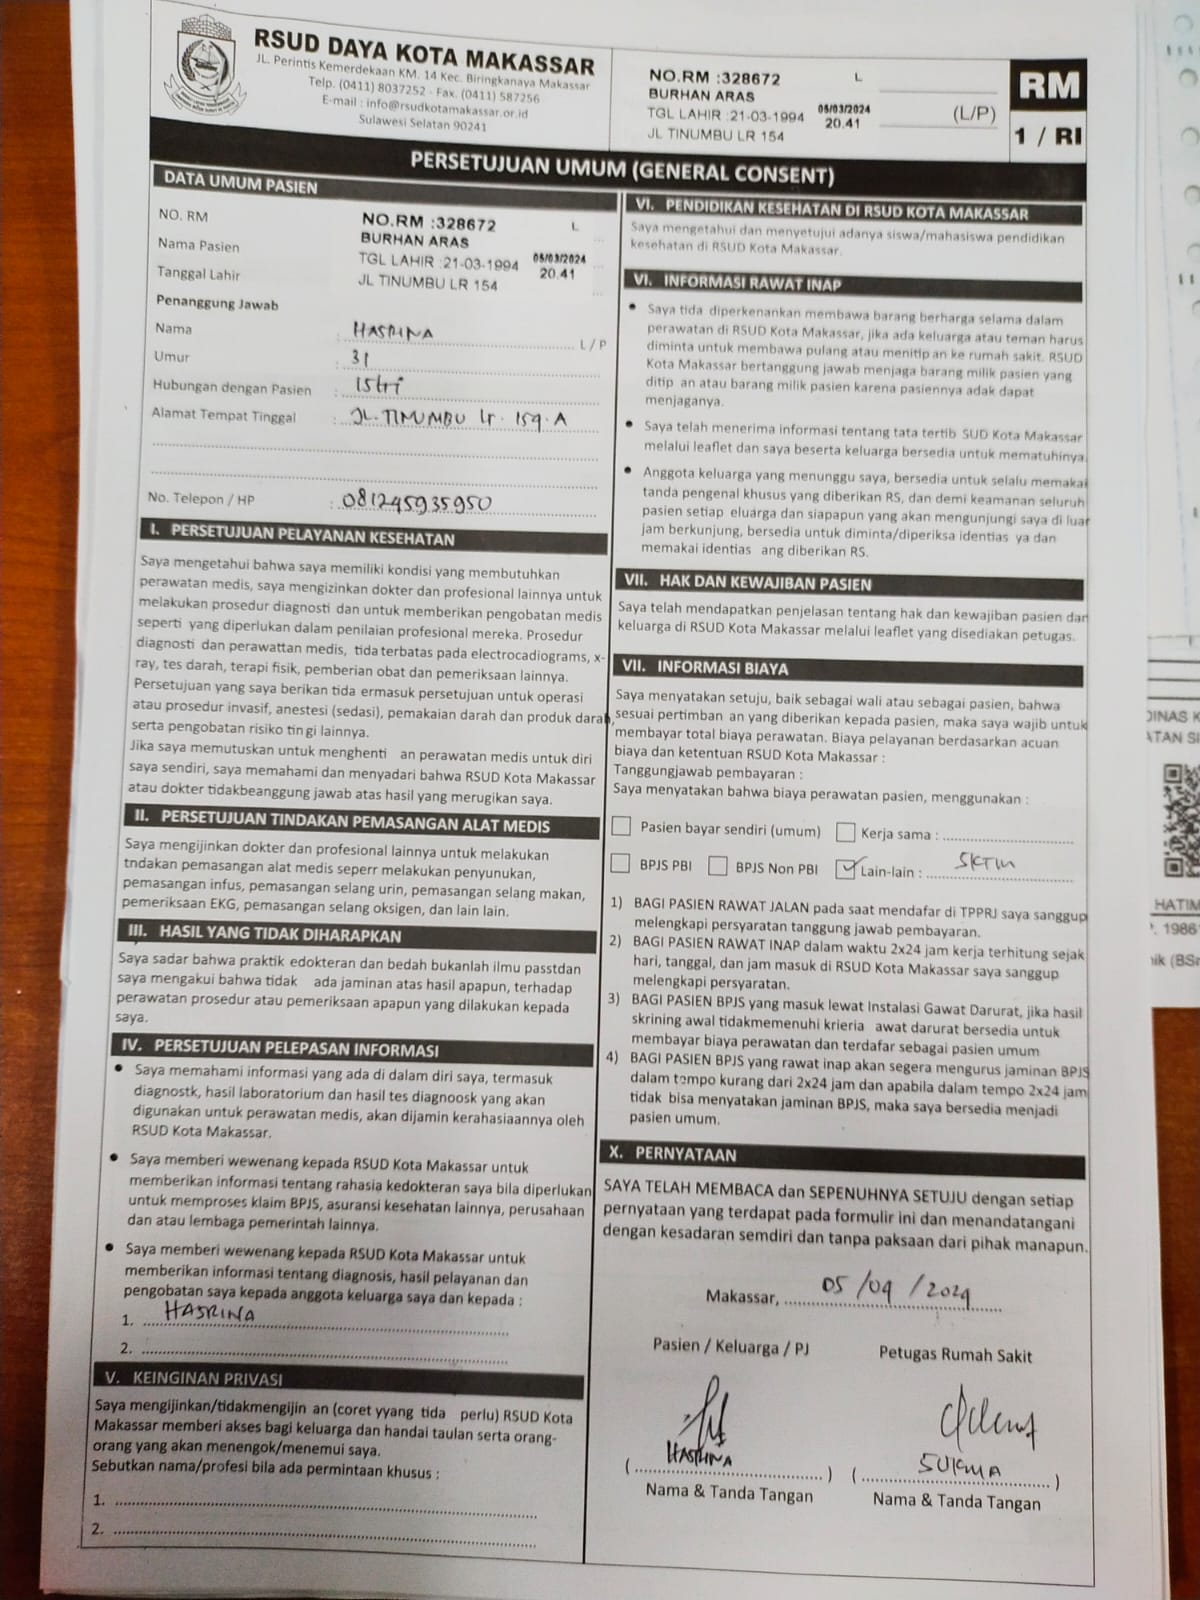 RSUD DAYA KOTA MAKASSAR
JL. Perintis Kemerdekaan KM. 14 Kec. Biringkanaya Makassar
Telp. (0411) 8037252 - Fax. (0411) 587256
E-mail : info@rsudkotamakassar.or.id
Sulawesi Selatan 90241
NO.RM :328672 L
BURHAN ARAS
TGL LAHIR :21-03-1994 05/03/2024
20.41
JL TINUMBU LR 154
(L/P)
RM
1 / RI
PERSETUJUAN UMUM (GENERAL CONSENT)
DATA UMUM PASIEN
NO. RM
Nama Pasien
Tanggal Lahir
NO.RM :328672 L
BURHAN ARAS
TGL LAHIR :21-03-1994 05/03/2024
20.41
JL TINUMBU LR 154
Penanggung Jawab
Nama : HASRINA L / P
Umur : 31
Hubungan dengan Pasien : Istri
Alamat Tempat Tinggal : JL. TINUMBU Lr. 154. A
No. Telepon / HP : 081245935950
I. PERSETUJUAN PELAYANAN KESEHATAN
Saya mengetahui bahwa saya memiliki kondisi yang membutuhkan
perawatan medis, saya mengizinkan dokter dan profesional lainnya untuk
melakukan prosedur diagnosti dan untuk memberikan pengobatan medis
seperti yang diperlukan dalam penilaian profesional mereka. Prosedur
diagnosti dan perawattan medis, tida terbatas pada electrocadiograms, x-
ray, tes darah, terapi fisik, pemberian obat dan pemeriksaan lainnya.
Persetujuan yang saya berikan tida ermasuk persetujuan untuk operasi
atau prosedur invasif, anestesi (sedasi), pemakaian darah dan produk darah,
serta pengobatan risiko tin gi lainnya.
Jika saya memutuskan untuk menghenti an perawatan medis untuk diri
saya sendiri, saya memahami dan menyadari bahwa RSUD Kota Makassar
atau dokter tidakbeanggung jawab atas hasil yang merugikan saya.
II. PERSETUJUAN TINDAKAN PEMASANGAN ALAT MEDIS
Saya mengijinkan dokter dan profesional lainnya untuk melakukan
tndakan pemasangan alat medis seperr melakukan penyunukan,
pemasangan infus, pemasangan selang urin, pemasangan selang makan,
pemeriksaan EKG, pemasangan selang oksigen, dan lain lain.
III. HASIL YANG TIDAK DIHARAPKAN
Saya sadar bahwa praktik edokteran dan bedah bukanlah ilmu passtdan
saya mengakui bahwa tidak ada jaminan atas hasil apapun, terhadap
perawatan prosedur atau pemeriksaan apapun yang dilakukan kepada
saya.
IV. PERSETUJUAN PELEPASAN INFORMASI
• Saya memahami informasi yang ada di dalam diri saya, termasuk
diagnostk, hasil laboratorium dan hasil tes diagnoosk yang akan
digunakan untuk perawatan medis, akan dijamin kerahasiaannya oleh
RSUD Kota Makassar.
• Saya memberi wewenang kepada RSUD Kota Makassar untuk
memberikan informasi tentang rahasia kedokteran saya bila diperlukan
untuk memproses klaim BPJS, asuransi kesehatan lainnya, perusahaan
dan atau lembaga pemerintah lainnya.
• Saya memberi wewenang kepada RSUD Kota Makassar untuk
memberikan informasi tentang diagnosis, hasil pelayanan dan
pengobatan saya kepada anggota keluarga saya dan kepada :
1. HASRINA
2.
V. KEINGINAN PRIVASI
Saya mengijinkan/tidakmengijin an (coret yyang tida perlu) RSUD Kota
Makassar memberi akses bagi keluarga dan handai taulan serta orang-
orang yang akan menengok/menemui saya.
Sebutkan nama/profesi bila ada permintaan khusus :
1.
2.
VI. PENDIDIKAN KESEHATAN DI RSUD KOTA MAKASSAR
Saya mengetahui dan menyetujui adanya siswa/mahasiswa pendidikan
kesehatan di RSUD Kota Makassar.
VI. INFORMASI RAWAT INAP
• Saya tida diperkenankan membawa barang berharga selama dalam
perawatan di RSUD Kota Makassar, jika ada keluarga atau teman harus
diminta untuk membawa pulang atau menitip an ke rumah sakit. RSUD
Kota Makassar bertanggung jawab menjaga barang milik pasien yang
ditip an atau barang milik pasien karena pasiennya adak dapat
menjaganya.
• Saya telah menerima informasi tentang tata tertib SUD Kota Makassar
melalui leaflet dan saya beserta keluarga bersedia untuk mematuhinya.
• Anggota keluarga yang menunggu saya, bersedia untuk selalu memakai
tanda pengenal khusus yang diberikan RS, dan demi keamanan seluruh
pasien setiap eluarga dan siapapun yang akan mengunjungi saya di luar
jam berkunjung, bersedia untuk diminta/diperiksa identias ya dan
memakai identias ang diberikan RS.
VII. HAK DAN KEWAJIBAN PASIEN
Saya telah mendapatkan penjelasan tentang hak dan kewajiban pasien dan
keluarga di RSUD Kota Makassar melalui leaflet yang disediakan petugas.
VII. INFORMASI BIAYA
Saya menyatakan setuju, baik sebagai wali atau sebagai pasien, bahwa
sesuai pertimban an yang diberikan kepada pasien, maka saya wajib untuk
membayar total biaya perawatan. Biaya pelayanan berdasarkan acuan
biaya dan ketentuan RSUD Kota Makassar :
Tanggungjawab pembayaran :
Saya menyatakan bahwa biaya perawatan pasien, menggunakan :
Pasien bayar sendiri (umum) Kerja sama :
BPJS PBI BPJS Non PBI Lain-lain : SKTM
1) BAGI PASIEN RAWAT JALAN pada saat mendafar di TPPRJ saya sanggup
melengkapi persyaratan tanggung jawab pembayaran.
2) BAGI PASIEN RAWAT INAP dalam waktu 2x24 jam kerja terhitung sejak
hari, tanggal, dan jam masuk di RSUD Kota Makassar saya sanggup
melengkapi persyaratan.
3) BAGI PASIEN BPJS yang masuk lewat Instalasi Gawat Darurat, jika hasil
skrining awal tidakmemenuhi krieria awat darurat bersedia untuk
membayar biaya perawatan dan terdafar sebagai pasien umum
4) BAGI PASIEN BPJS yang rawat inap akan segera mengurus jaminan BPJS
dalam tempo kurang dari 2x24 jam dan apabila dalam tempo 2x24 jam
tidak bisa menyatakan jaminan BPJS, maka saya bersedia menjadi
pasien umum.
X. PERNYATAAN
SAYA TELAH MEMBACA dan SEPENUHNYA SETUJU dengan setiap
pernyataan yang terdapat pada formulir ini dan menandatangani
dengan kesadaran semdiri dan tanpa paksaan dari pihak manapun.
Makassar, 05 / 04 / 2024
Pasien / Keluarga / PJ Petugas Rumah Sakit
( HASRINA ) ( SUKMA )
Nama & Tanda Tangan Nama & Tanda Tangan
DINAS K
ATAN SI
HATIM
P. 1986
nik (BSr